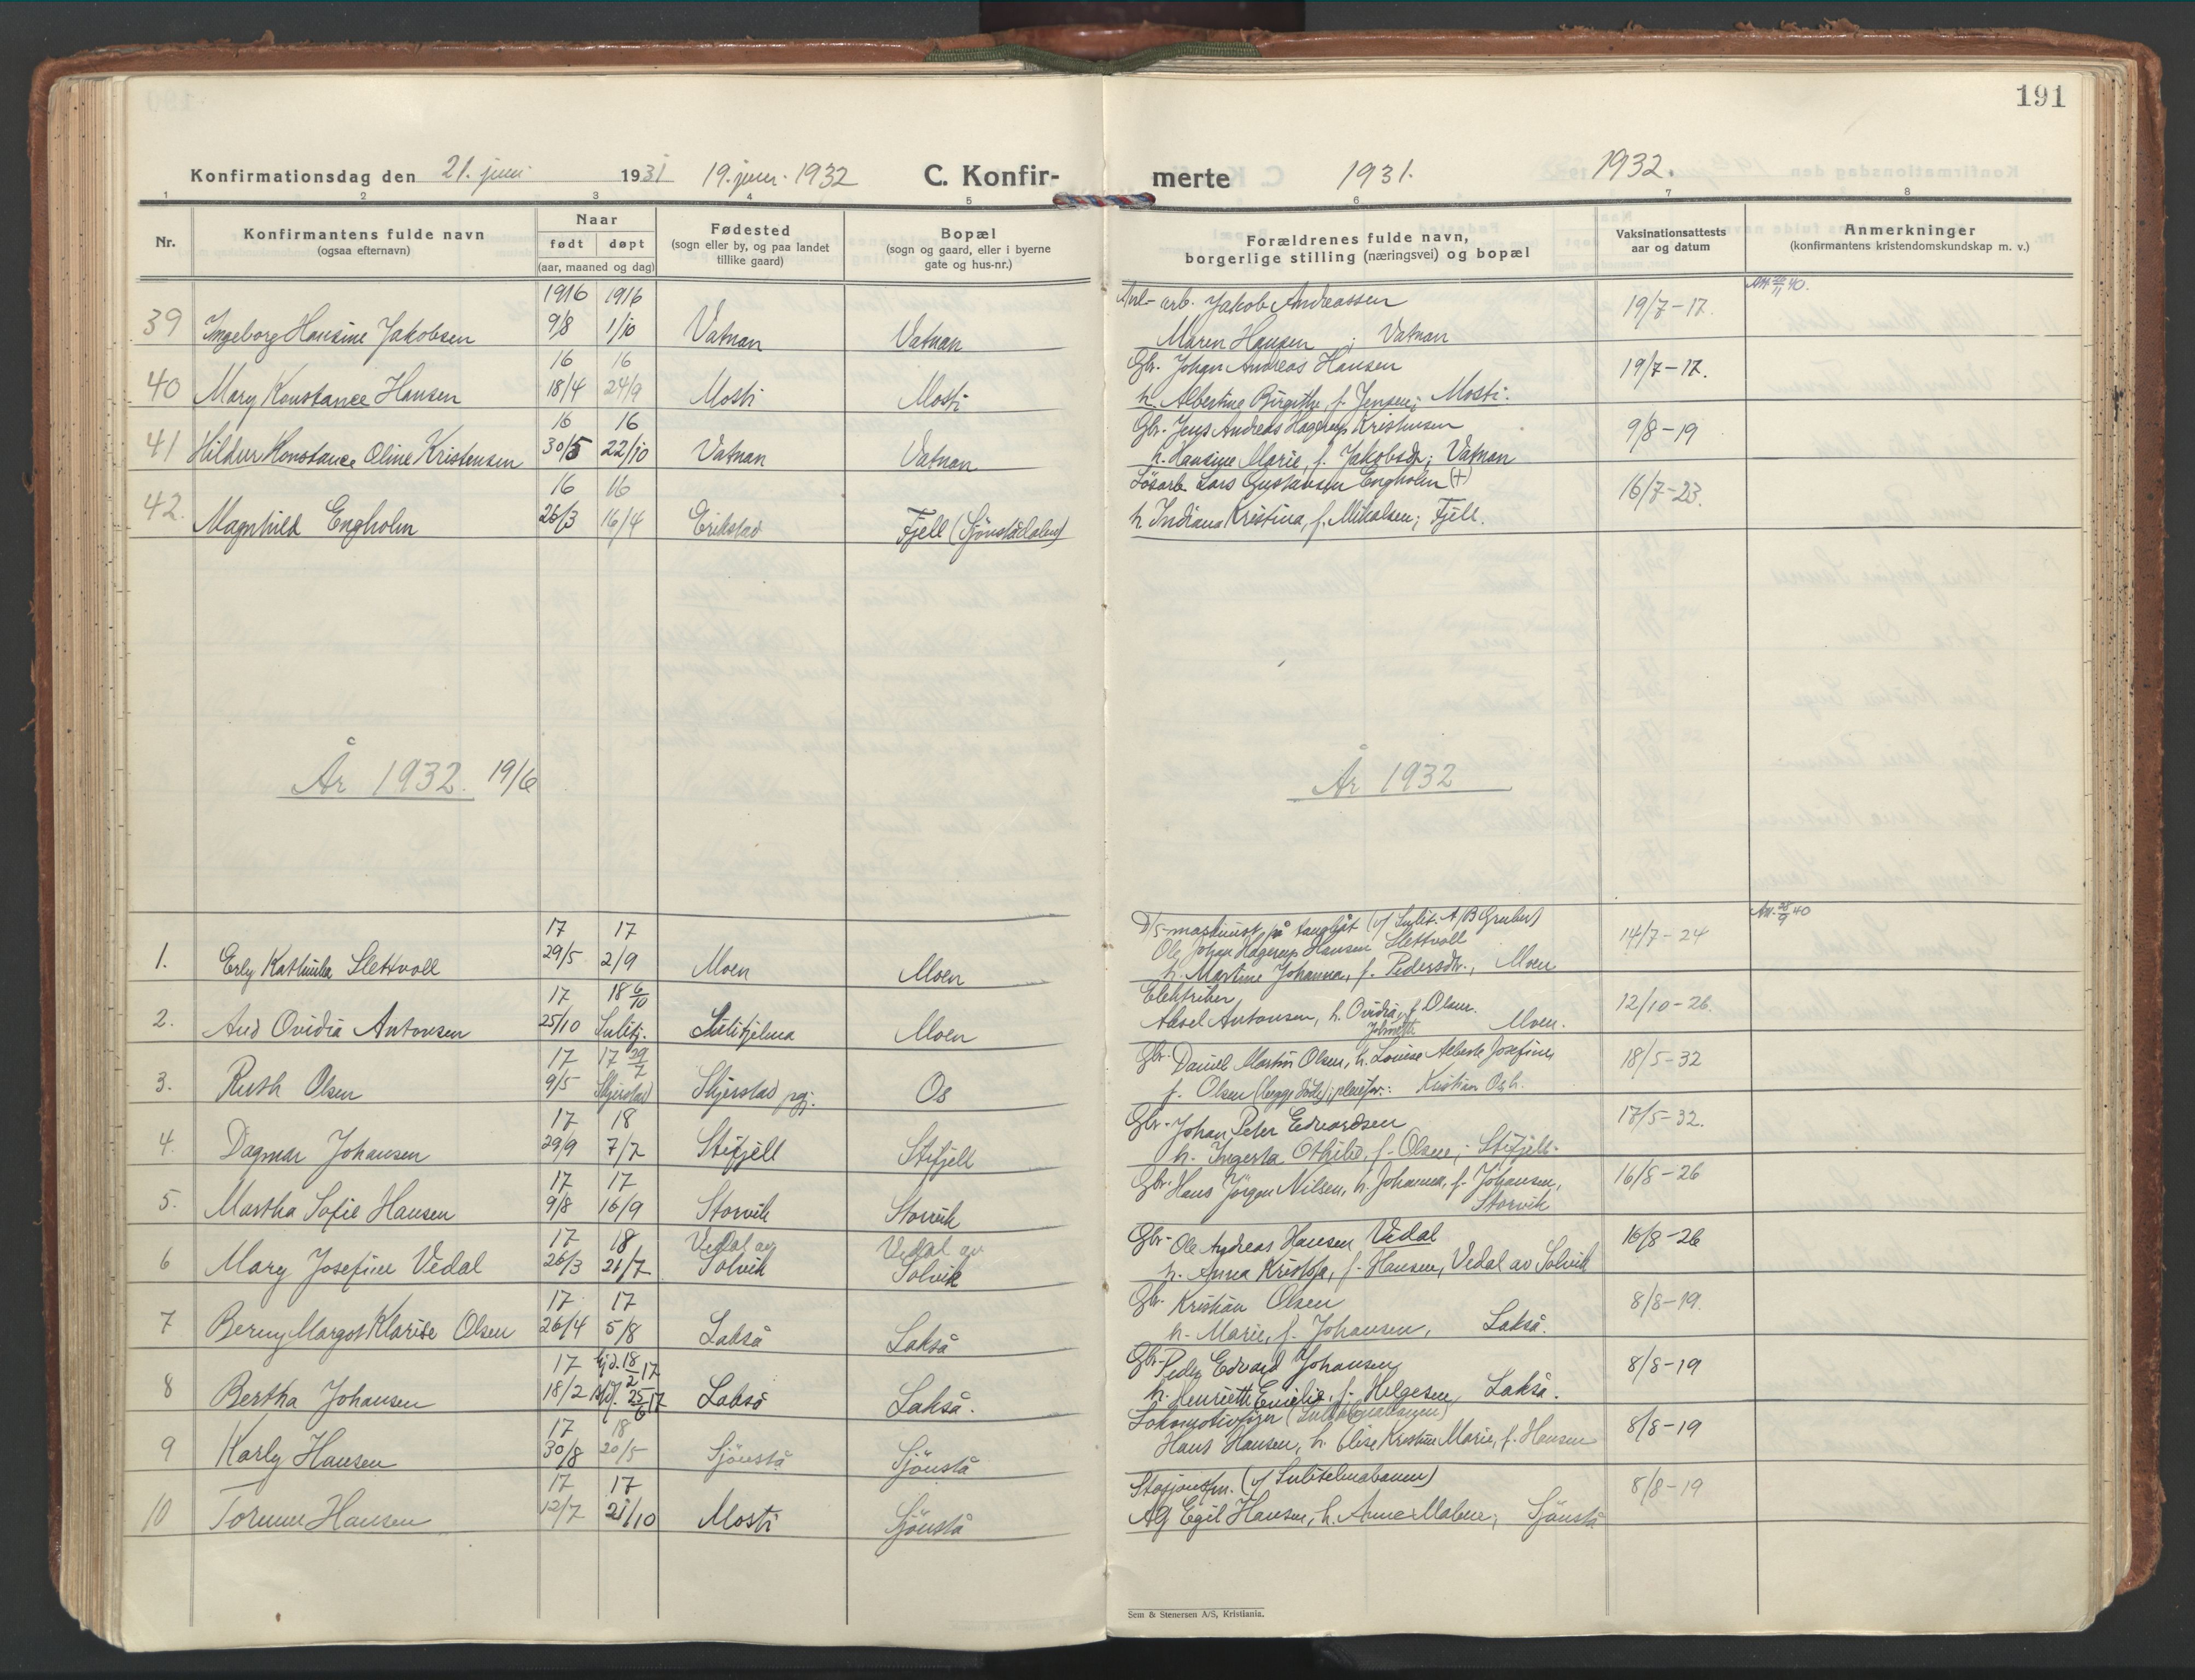 191
Konfirmationsdag den 21. juni 1931 19. juni 1932 C. Konfir-
merte 1931. 1932.
1 2 3 4 5 6 7 8
Nr.
Konfirmantens fulde navn
(ogsaa efternavn)
Naar
født døpt
(aar, maaned og dag)
Fødested
(sogn eller by, og paa landet
tillike gaard)
Bopæl
(sogn og gaard, eller i byerne
gate og hus-nr.)
Forældrenes fulde navn,
borgerlige stilling (næringsvei) og bopæl
Vaksinationsattests
aar og datum
Anmerkninger
(konfirmantens kristendomskundskap m. v.)
1916 1916 Anl-arb. Jakob Andreassen 19/7-17.
39 Ingeborg Hansine Jakobsen 9/8 1/10 Vatnan Vatnan Maren Hansen ; Vatnan
16 16 Gbr. Johan Andreas Hansen 19/7-17.
40 Mary Konstance Hansen 18/4 24/9 Mosti Mosti h. Albertine Birgitte, f. Jensen; Mosti.
16 16 Gbr. Jens Andreas Hagerup Kristensen 9/8-19
41 Hildur Konstance Oline Kristensen 30/5 22/10 Vatnan Vatnan h. Hansine Marie, f. Jakobsdr; Vatnan
16 16 Løsarb. Lars Gustavsen Engholm (+) 16/7-23.
42. Magnhild Engholm 26/3 16/4 Erikstad Fjell (Sjønstådalen) h. Indiana Kristina, f. Mikalsen; Fjell.
År 1932. 19/6 År 1932
17 17 D/S-maskinist på taugbåt (v/ Sulit. A/B Gruber) 14/7-24
Ole Johan Hagerup Hansen Slettvoll
1. Erly Kathinka Slettvoll 29/5 2/9 Moen Moen h. Martine Johanna, f. Pedersdtr., Moen
17 18 6/10 Elektriker 12/10-26.
2. Aud Ovidia Antonsen 25/10 Sulitj. Sulitjelma Moen Aksel Antonsen, h. Ovidia, f. Olsen. Moen.
17 17 29/7 Gbr. Daniel Martin Olsen, h. Louise Alberte Josefine, 18/5-32
3. Ruth Olsen 9/5 Skjerstad Skjerstad pgj. Os f. Olsen (begge døde); pleiefor.: Kristian Os h.
17 18 Gbr. Johan Peter Edvardsen 17/5-32.
4. Dagmar Johansen 29/9 7/7 Stifjell Stifjell h. Ingerta Othilie, f. Olsen; Stifjell.
17 17 Gbr. Hans Jörgen Nilsen, h. Johanna, f. Johansen, 16/8-26
5. Martha Sofie Hansen 9/8 16/9 Storvik Storvik Storvik
17 18 Vedal av Vedal av Gbr. Ole Andreas Hansen Vedal 16/8-26
6 Mary Josefine Vedal 26/3 21/7 Solvik Solvik h. Anna Kristofa, f. Hansen, Vedal av Solvik
17 17 Gbr. Kristian Olsen 8/8-19.
7 Berny Margot Klarise Olsen 26/4 5/8 Lakså Lakså h. Marie, f. Johansen, Lakså.
17 hjd. 18/2 17 Gbr. Peder Edvard Johansen 8/8-19
8 Bertha Johansen 18/2 stdf. 25/6 17 Lakså Lakså. h. Henriette Emelie, f. Helgesen, Lakså.
17 18 Lokomotivfyr (Sulitelmabanen) 8/8-19
9 Karly Hansen 30/8 20/5 Sjönstå Sjönstå Hans Hansen, h. Elise Kristine Marie, f. Hansen
17 17 Stasjonsfm. (v/ Sulitelmabanen) 8/8-19
10 Torunn Hansen 12/7 21/10 Mosti Sjönstå Åg Egil Hansen, h. Anna Malene, Sjönstå
Sem & Stenersen A/S, Kristiania.